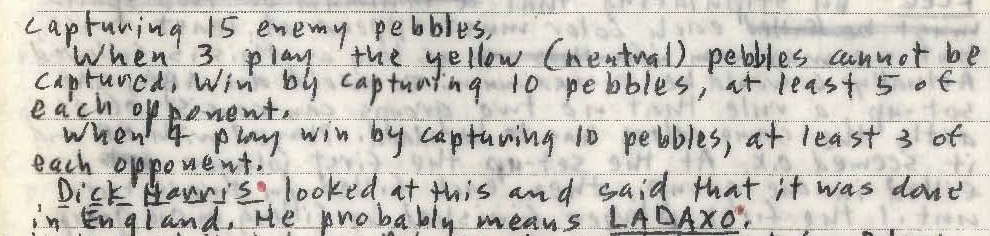 capturing 15 enemy pebbles.
When 3 play the yellow (neutral) pebbles cannot be
captured. Win by capturing 10 pebbles, at least 5 of
each opponent.
When 4 play win by capturing 10 pebbles, at least 3 of
each opponent.
Dick Harris looked at this and said that it was done
in England. He probably means LADAXO.